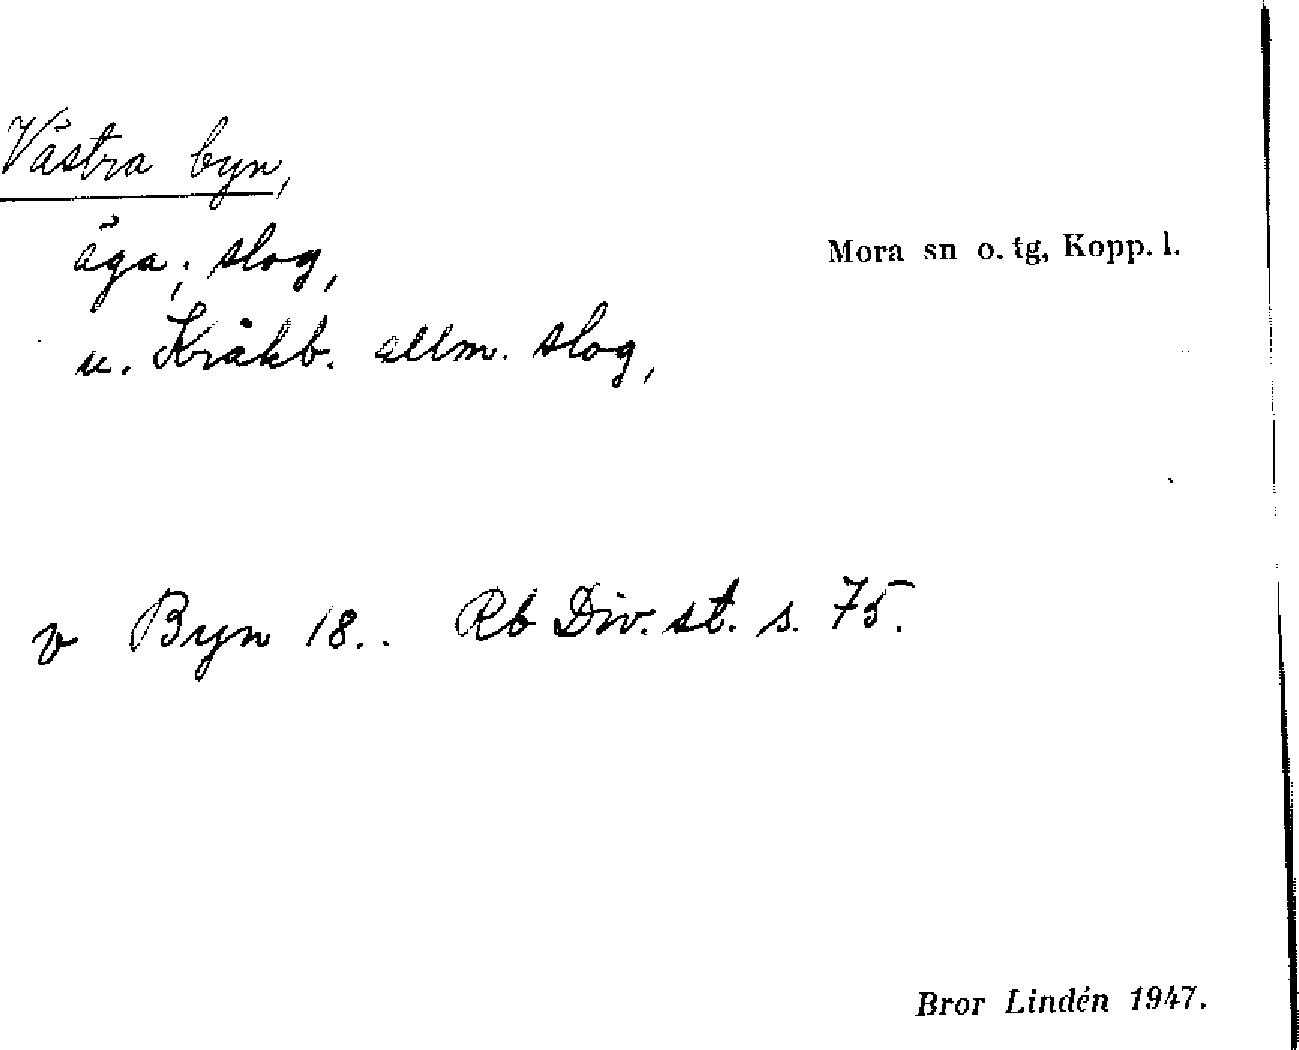 Västra byn,
äga; slog,
Mora sn o. tg, Kopp. l.
u. Kråkb. allm. slog,
v Byn 18.. Rb Div. st. s. 75.
Bror Lindén 1947.